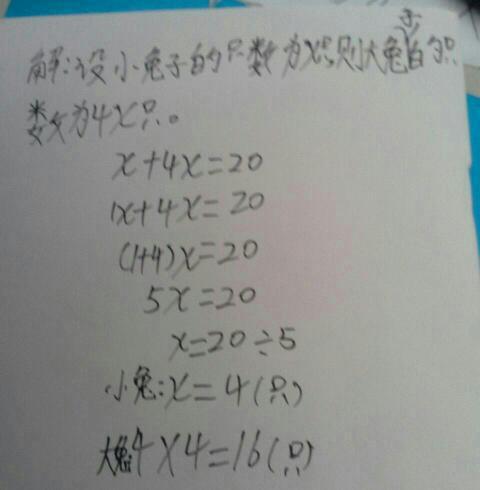 解:设小兔子的只数为x只,则大兔子的只
数为4x只。
x+4x=20
1x+4x=20
(1+4)x=20
5x=20
x=20÷5
小兔:x=4(只)
大兔4×4=16(只)